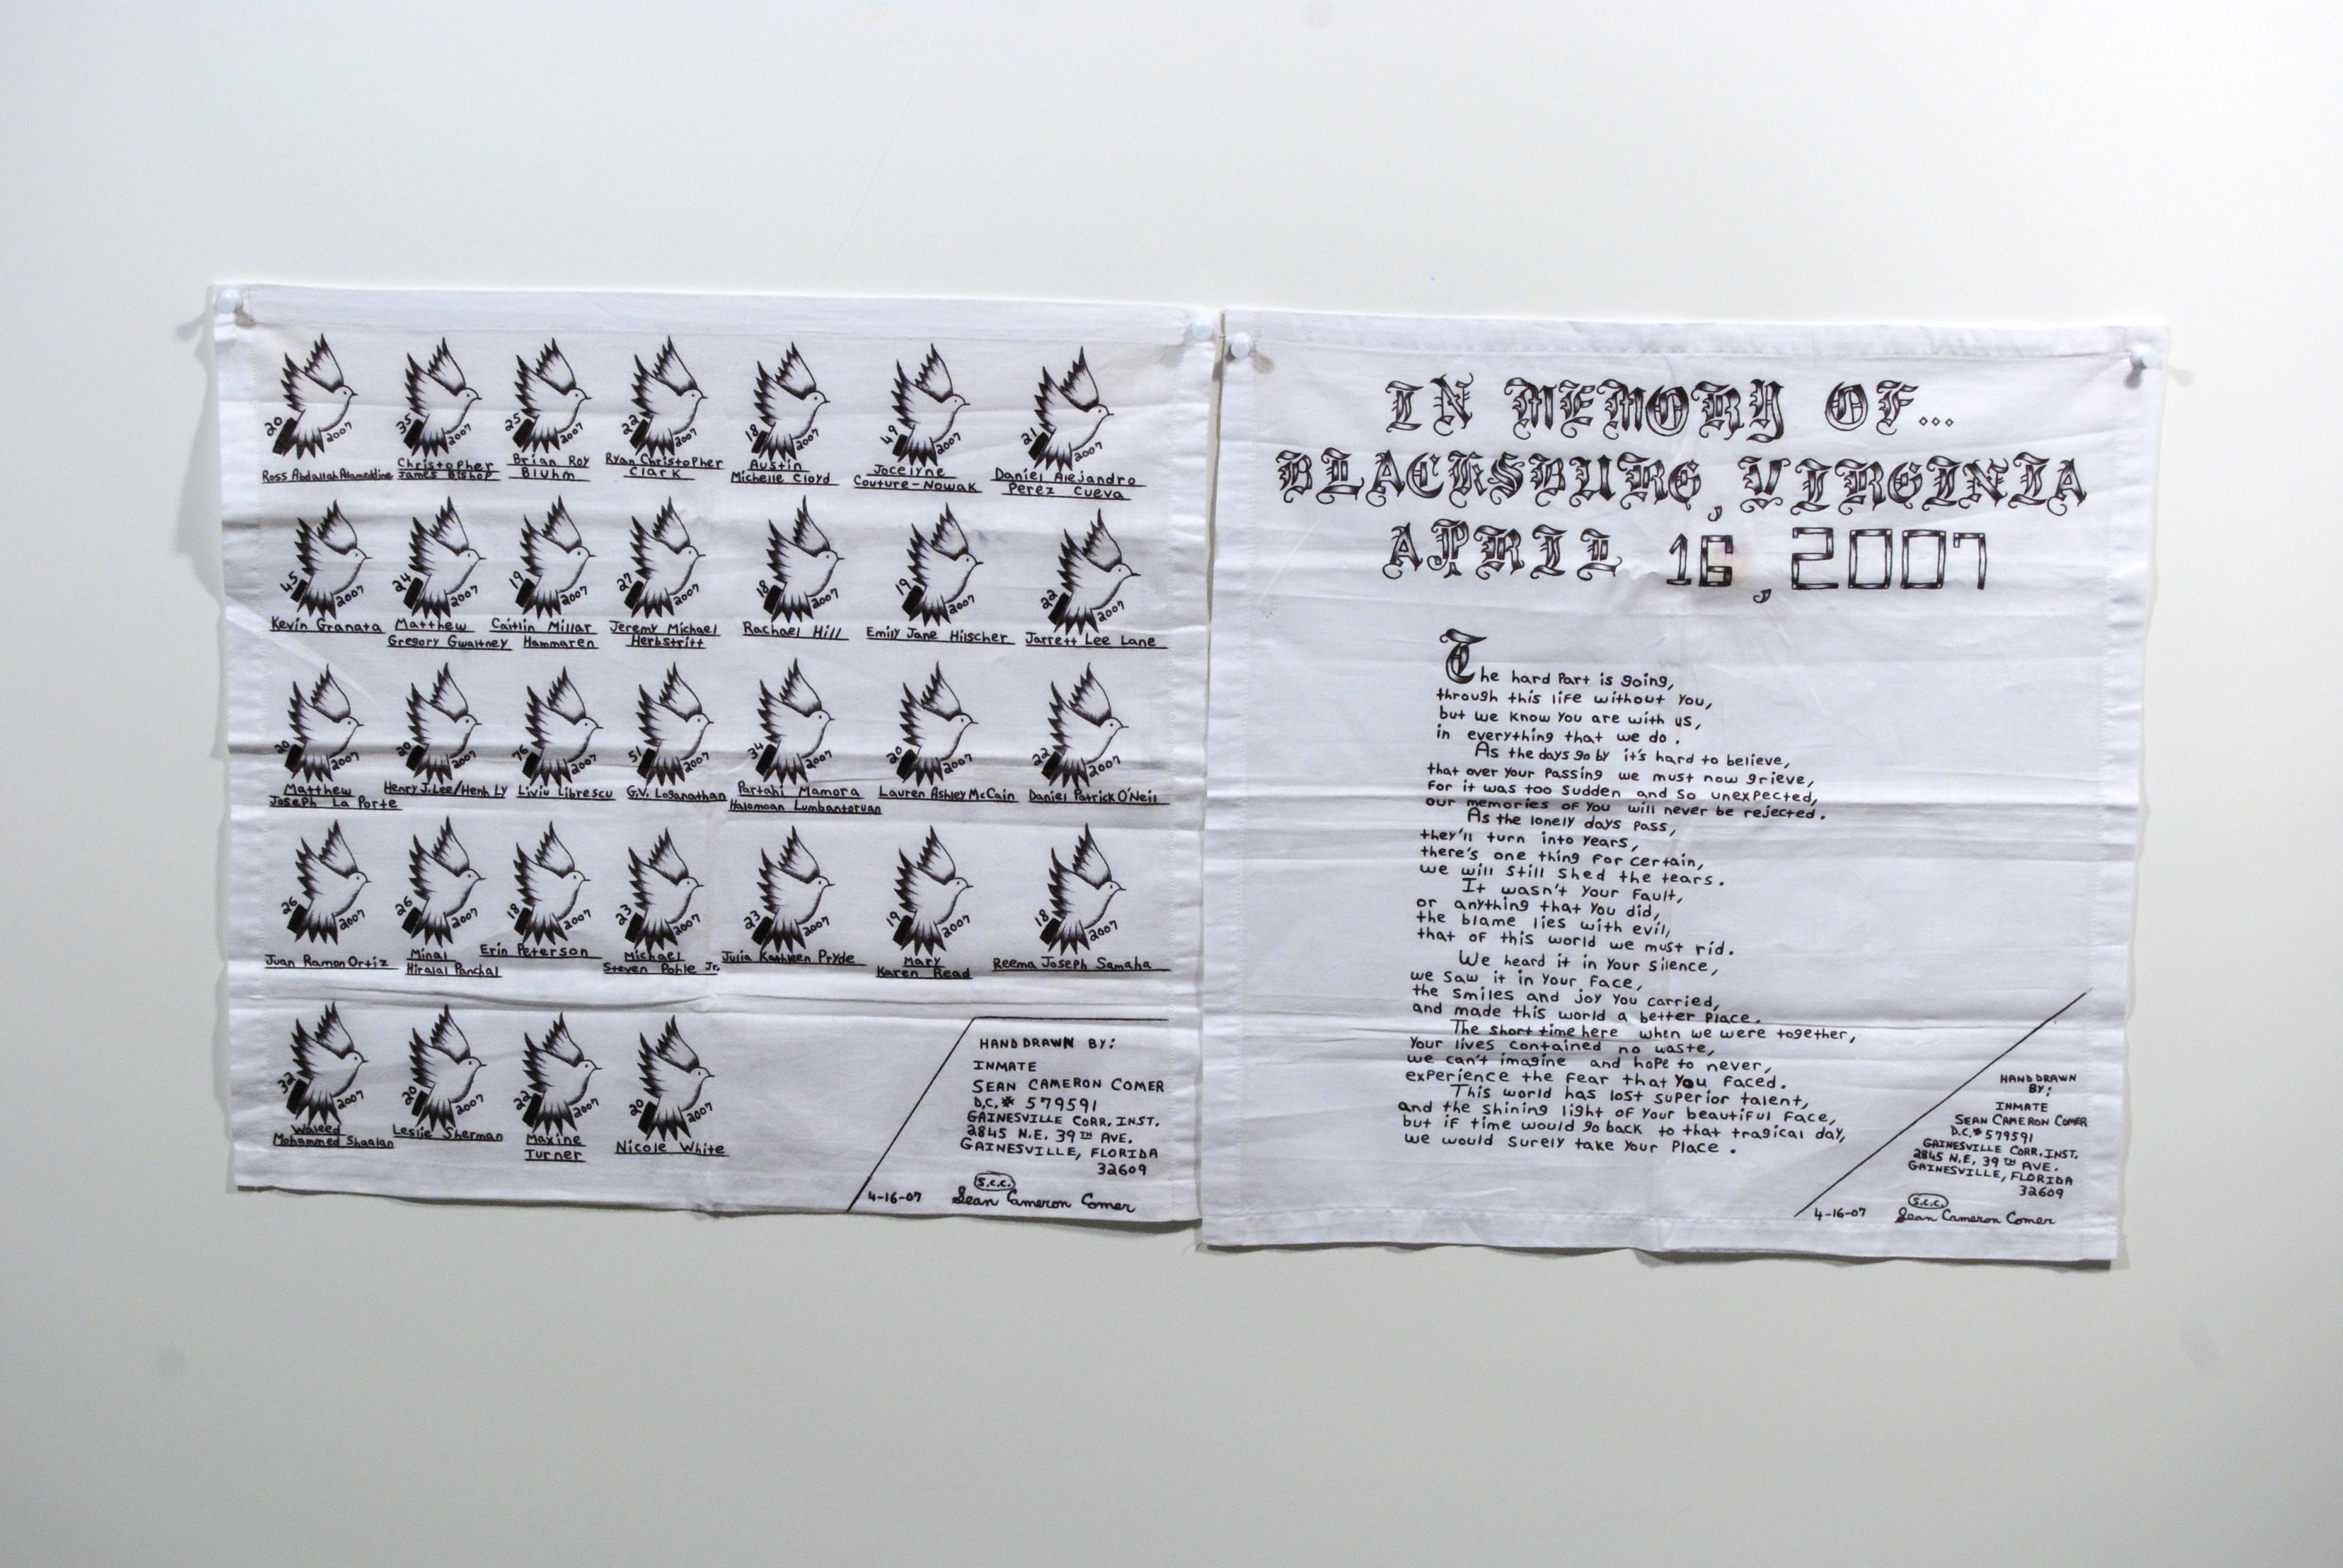 20 2007
Ross Abdallah Alameddine
35 2007
Christopher
James Bishop
25 2007
Brian Roy
Bluhm
22 2007
Ryan Christopher
Clark
18 2007
Austin
Michelle Cloyd
49 2007
Jocelyne
Couture-Nowak
21 2007
Daniel Alejandro
Perez Cueva
45 2007
Kevin Granata
24 2007
Matthew
Gregory Gwaltney
19 2007
Caitlin Millar
Hammaren
27 2007
Jeremy Michael
Herbstritt
18 2007
Rachael Hill
19 2007
Emily Jane Hilscher
22 2007
Jarrett Lee Lane
20 2007
Matthew
Joseph La Porte
20 2007
Henry J. Lee/Henh Ly
76 2007
Liviu Librescu
51 2007
G.V. Loganathan
34 2007
Partahi Mamora
Halomoan Lumbantoruan
20 2007
Lauren Ashley McCain
22 2007
Daniel Patrick O'Neil
26 2007
Juan Ramon Ortiz
26 2007
Minal
Hiralal Panchal
18 2007
Erin Peterson
23 2007
Michael
Steven Pohle Jr.
23 2007
Julia Kathleen Pryde
19 2007
Mary
Karen Read
18 2007
Reema Joseph Samaha
32 2007
Waleed
Mohammed Shaalan
20 2007
Leslie Sherman
22 2007
Maxine
Turner
20 2007
Nicole White
HAND DRAWN BY:
INMATE
SEAN CAMERON COMER
D.C.# 579591
GAINESVILLE CORR. INST.
2845 N.E. 39TH AVE.
GAINESVILLE, FLORIDA
32609
S.C.C.
4-16-07 Sean Cameron Comer
IN MEMORY OF...
BLACKSBURG, VIRGINIA
APRIL 16, 2007
The hard part is going,
through this life without you,
but we know you are with us,
in everything that we do.
As the days go by it's hard to believe,
that over your passing we must now grieve,
For it was too sudden and so unexpected,
our memories of you will never be rejected.
As the lonely days pass,
they'll turn into years,
there's one thing for certain,
we will still shed the tears.
It wasn't your fault,
or anything that you did,
the blame lies with evil,
that of this world we must rid.
We heard it in your silence,
we saw it in your face,
the smiles and joy you carried,
and made this world a better place.
The short time here when we were together,
Your lives contained no waste,
we can't imagine and hope to never,
experience the fear that you faced.
This world has lost superior talent,
and the shining light of your beautiful face,
but if time would go back to that tragical day,
we would surely take your place.
HAND DRAWN
BY:
INMATE
SEAN CAMERON COMER
D.C.# 579591
GAINESVILLE CORR. INST.
2845 N.E. 39TH AVE.
GAINESVILLE, FLORIDA
32609
S.C.C.
4-16-07 Sean Cameron Comer